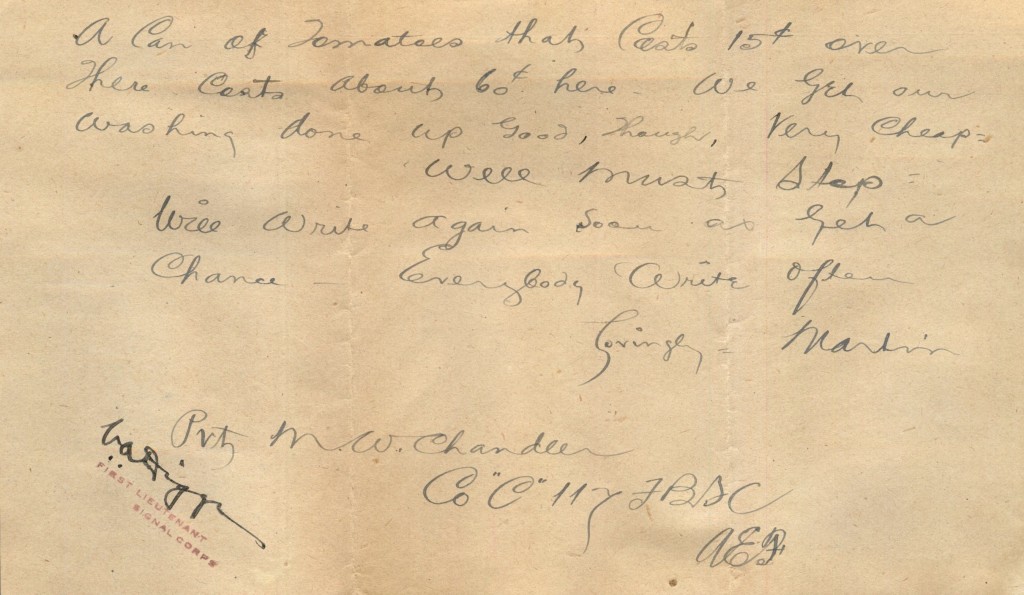 A Can of Tomatoes that Costs 15¢ over
There Costs about 60¢ here - We Get our
Washing done up Good, Though, Very Cheap -
Well Must Stop -
Will Write again Soon as Get a
Chance - Everybody Write often
Lovingly - Martin
Pvt M. W. Chandler
Co "C" 117 FBSC
AEF
FIRST LIEUTENANT
SIGNAL CORPS